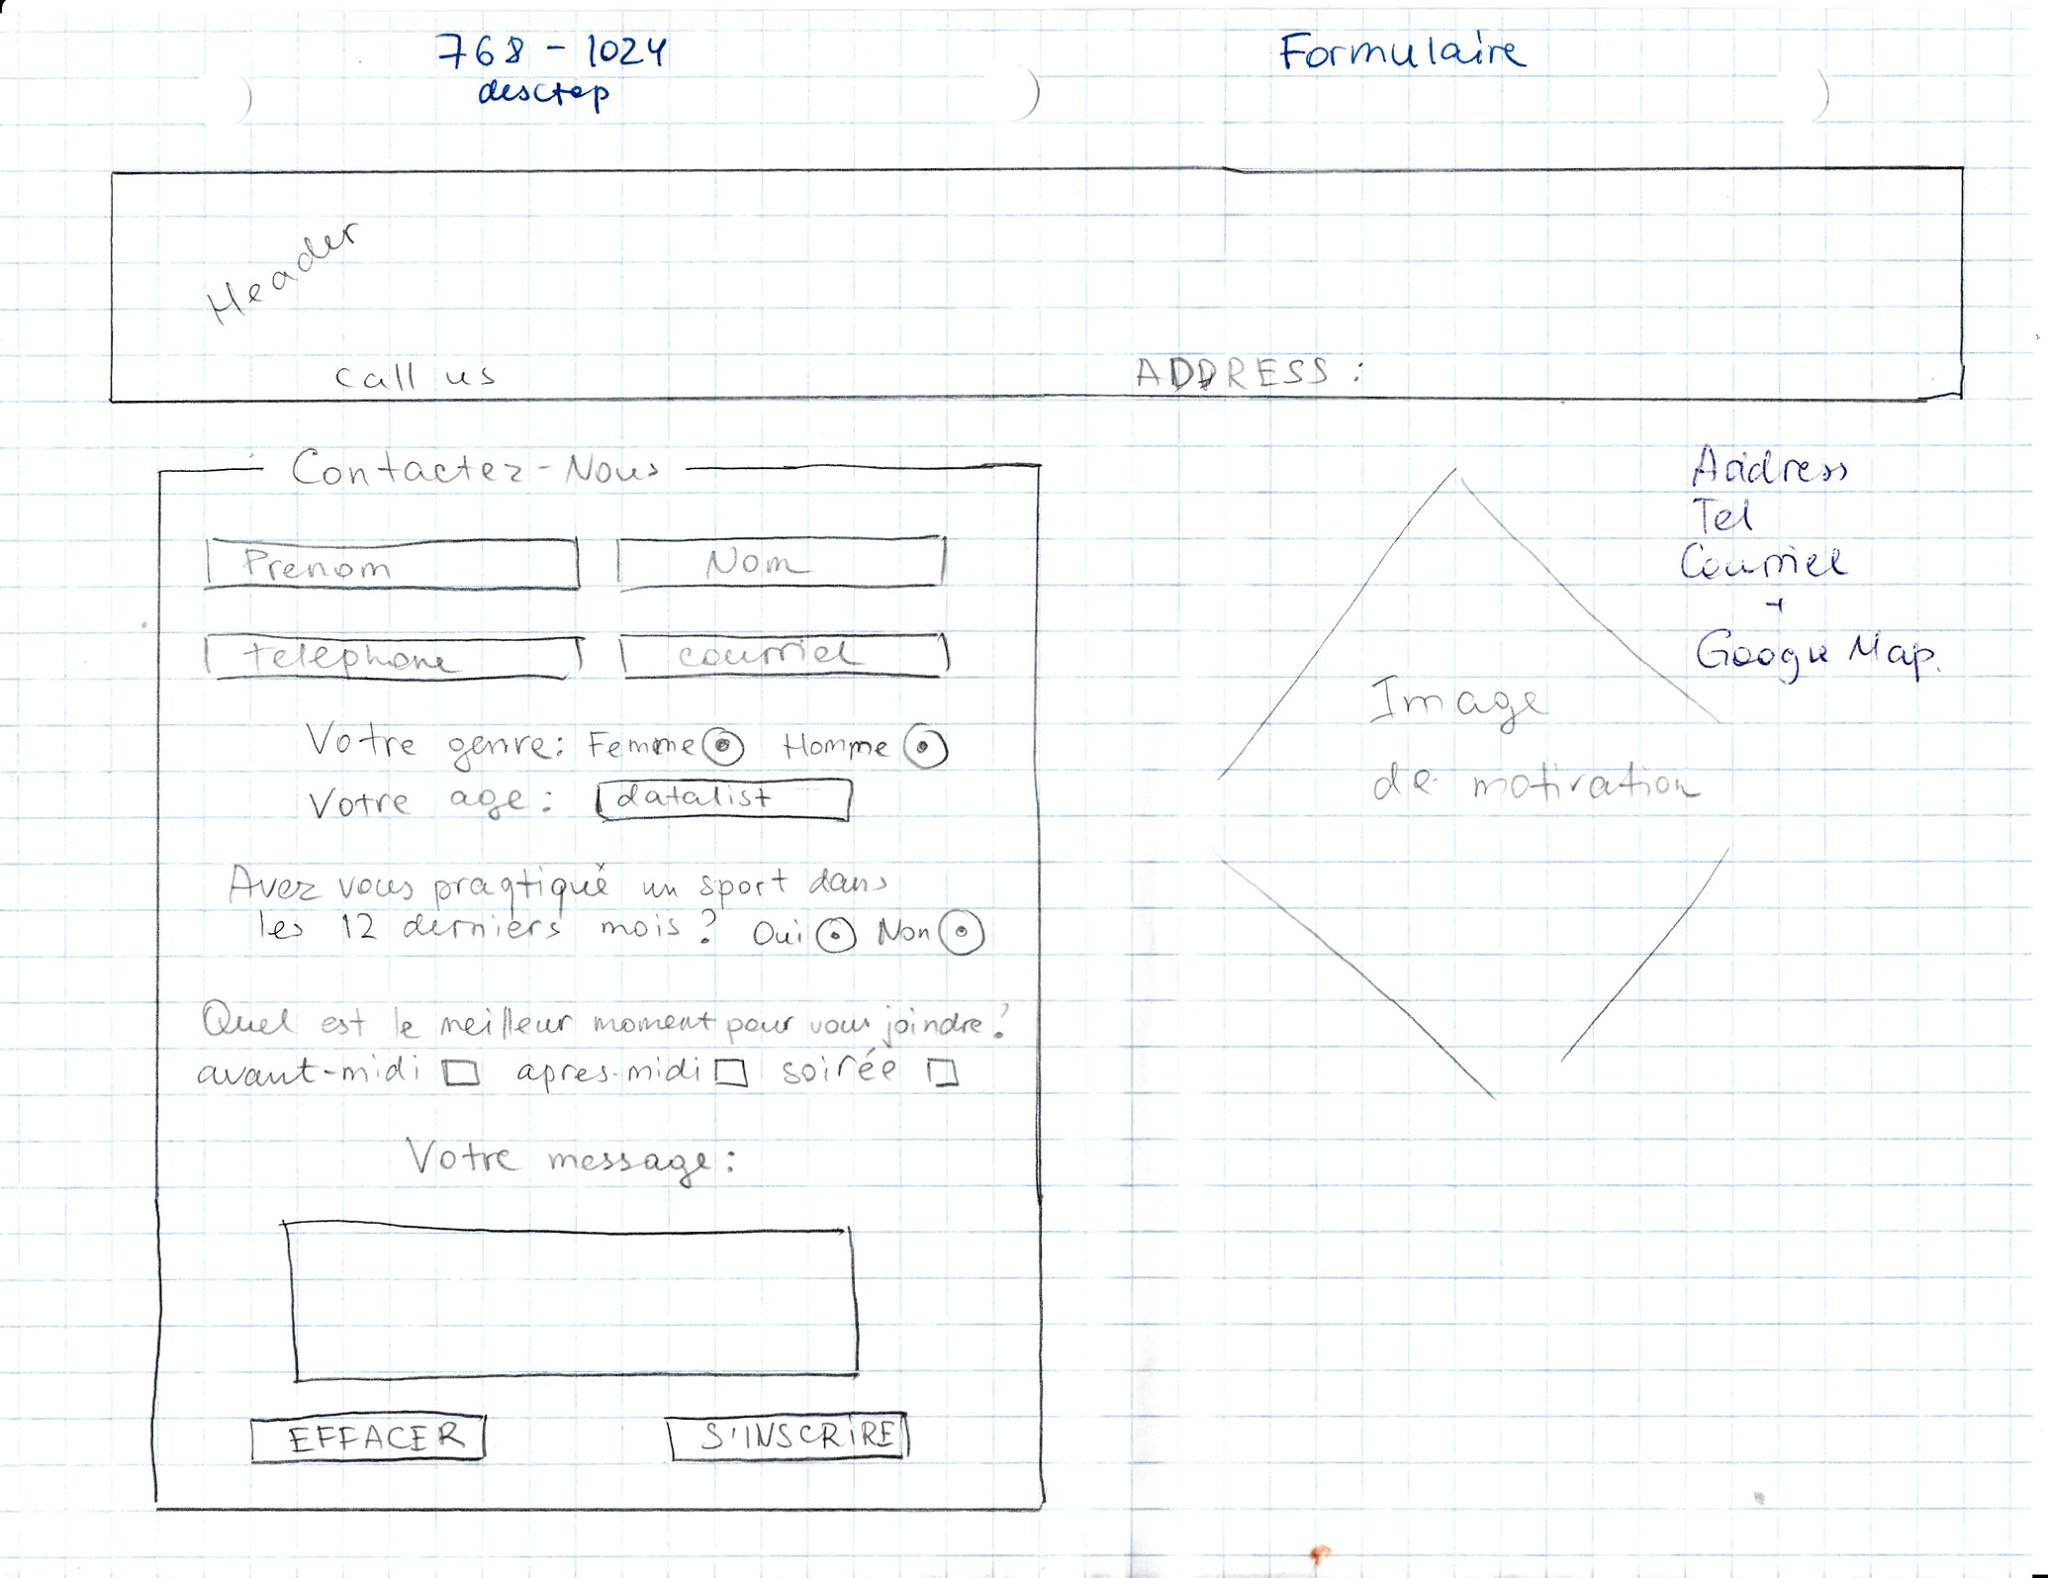 768 - 1024
desctop
Formulaire
Header
call us
ADDRESS :
Contactez-Nous
Prenom
Nom
telephone
courriel
Votre genre: Femme Homme
Votre age: datalist
Avez vous pragtiqué un sport dans
les 12 derniers mois? Oui Non
Quel est le meilleur moment pour vous joindre?
avant-midi apres-midi soirée
Votre message:
EFFACER
S'INSCRIRE
Address
Tel
Courriel
+
Google Map.
Image
de motivation